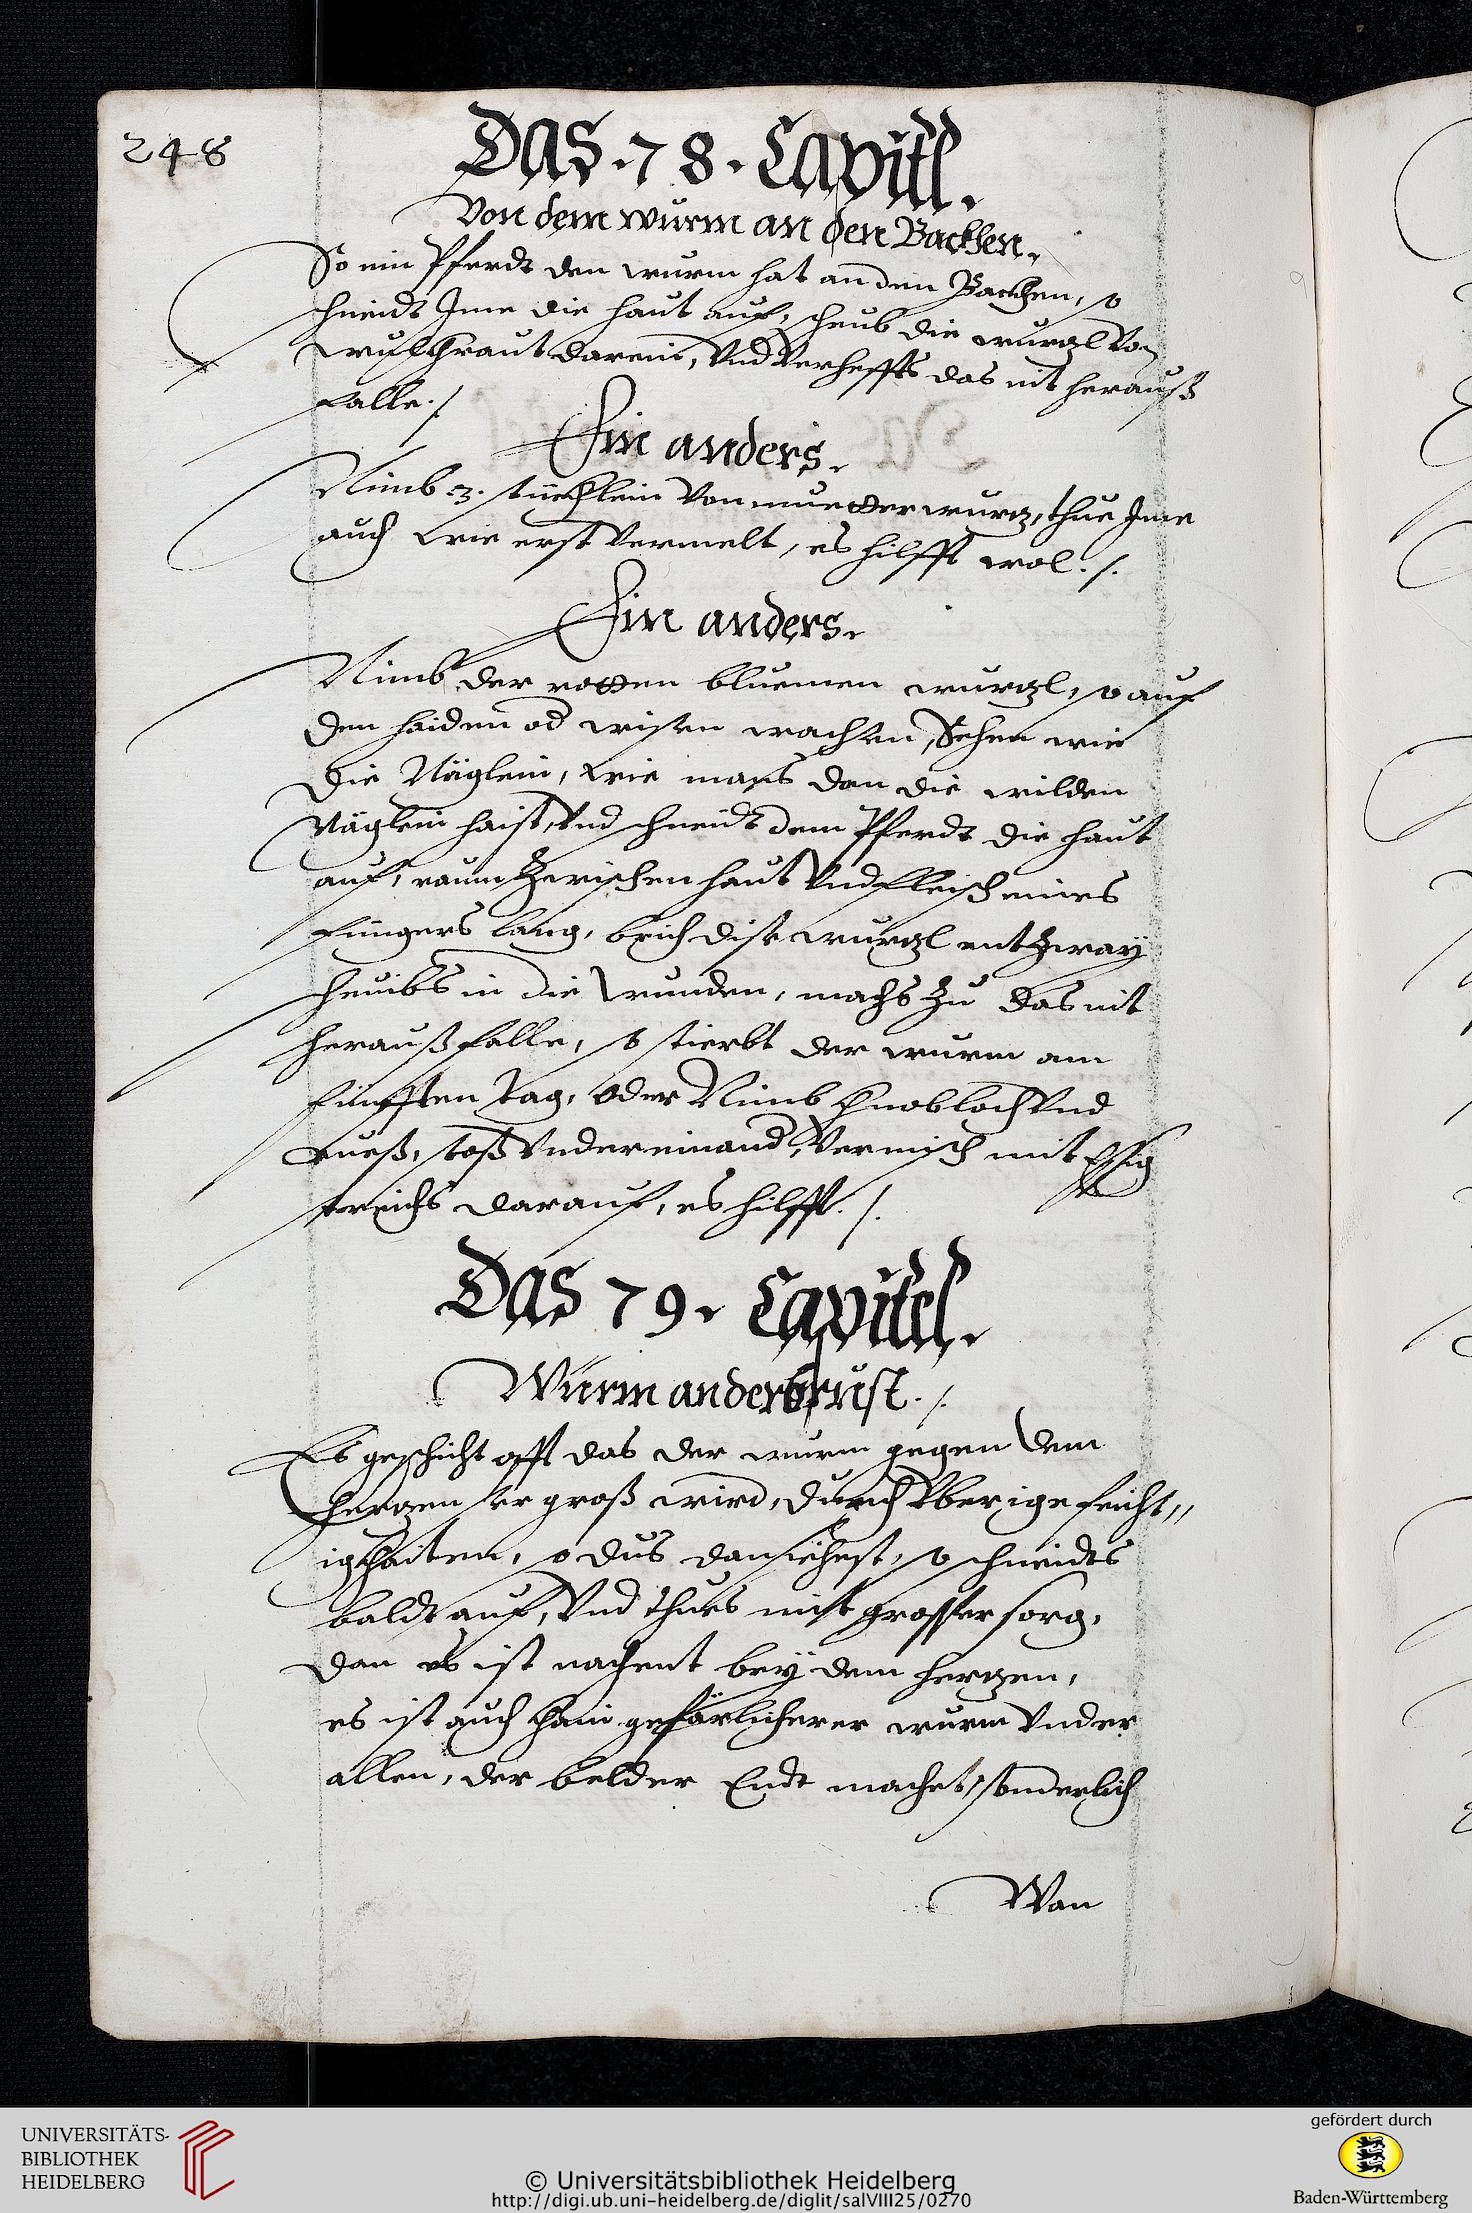 248
Das · 78 · Capitl.
Von dem wurm an den Backhen.
So ein Pferdt den wurm hat an den Backhen, so
schneidt Jme die haut auf, scheub die wurzl von
wulkhraut darein, Vnd Verheffts das nit herauß
falle ./
Ein anders.
Nimb .3. stückhlein Von muetterwurz, thue Jme
auch wie erst Vermelt, es hilfft wol ./.
Ein anders.
Nimb der rotten bluemen wurzl, so auf
den haiden od wisen wachsen, Sehen wie
die Näglein, wie mans dan die wilden
Näglein haist, Vnd schneidt dem Pferdt die haut
auf, raum Zwischen haut Vnd fleisch eines
fingers lang, brich dise wurzl entZway
scheubs in die wunden, machs Zu das nit
herauß falle, so stierbt der wurm am
fünfften tag, oder Nimb Knobloch Vnd
rueß, stoß Vndereinand, Vermisch mit Essig
streichs darauf, es hilfft ./.
Das 79. Capitel.
Wurm an der brust ./.
Es geschicht offt das der wurm gegen dem
herzen ser groß wird, durch Vberige feicht„
igkhaiten, so dus dan siehest, so schneidts
baldt auf, Vnd thues mit grosser sorg,
dan es ist nachent bey dem herzen,
es ist auch khain gefärlicherer wurm Vnder
allen, der belder Endt machet, sonderlich
Wan
UNIVERSITÄTS-
BIBLIOTHEK
HEIDELBERG
© Universitätsbibliothek Heidelberg
http://digi.ub.uni-heidelberg.de/diglit/salVIII25/0270
gefördert durch
Baden-Württemberg